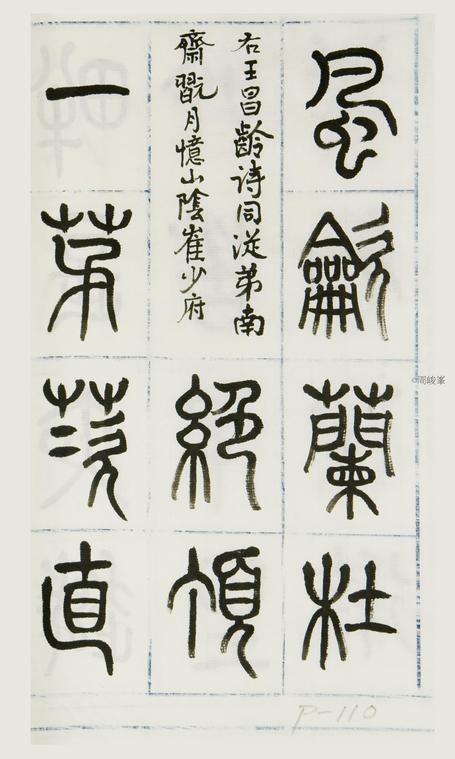 風龡蘭杜
右王昌齡詩同從弟南
齋翫月憶山陰崔少府
絕頂
一茅茨直
P-110
©周峻峯